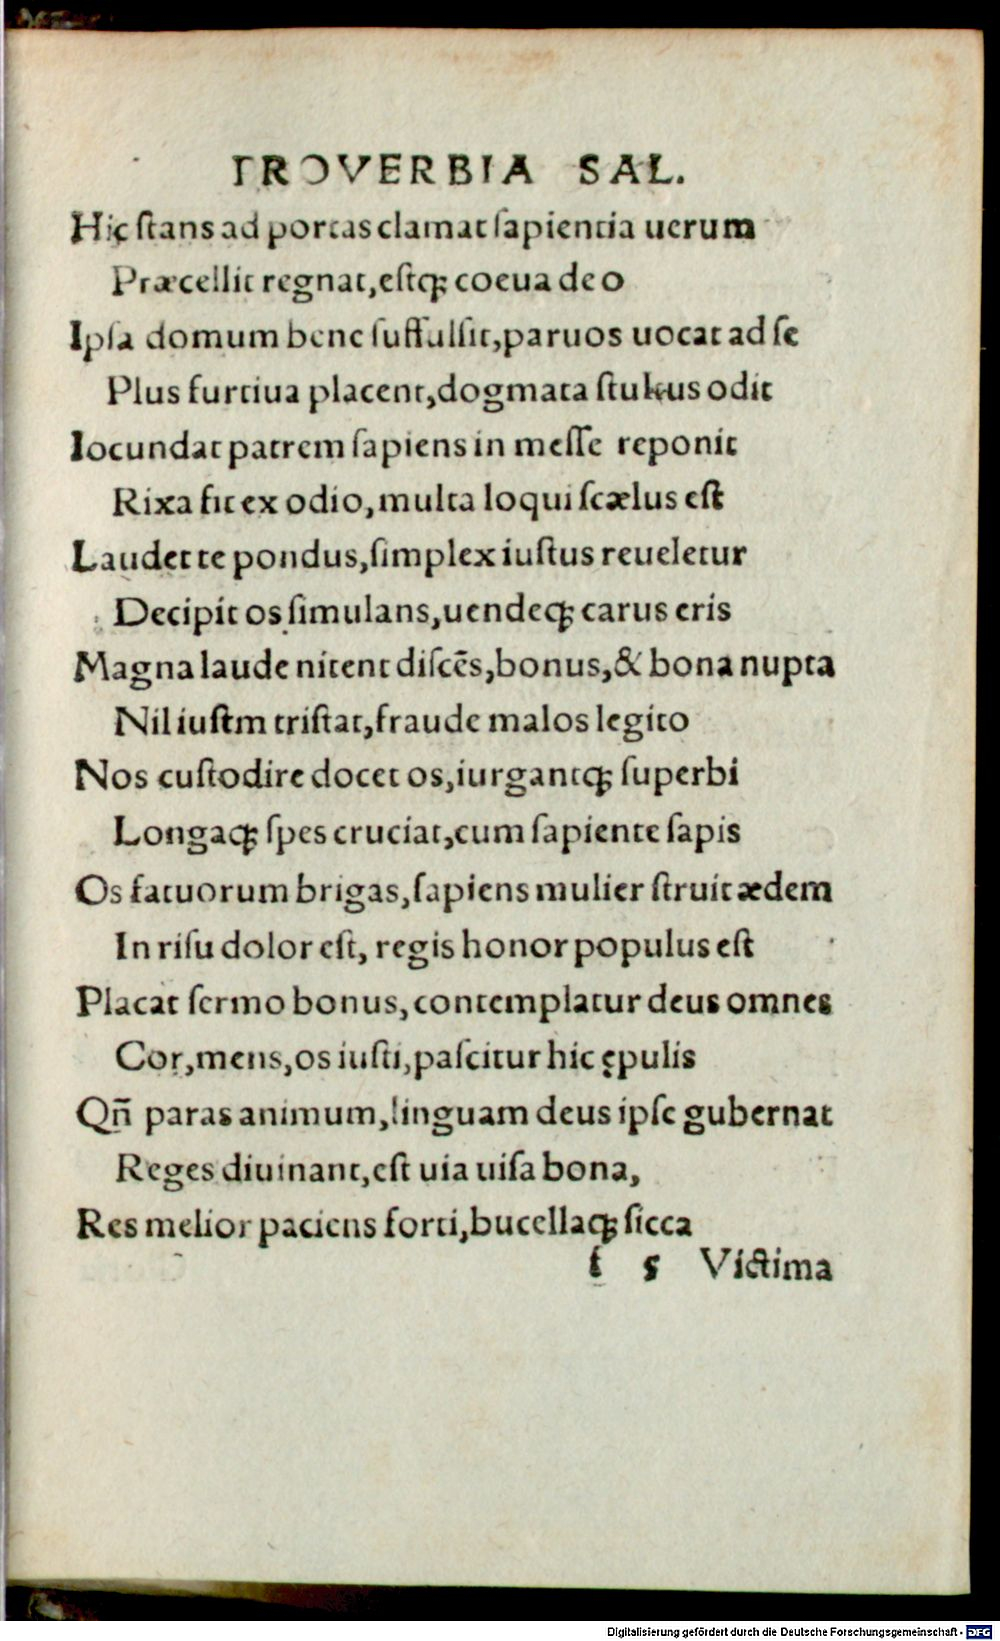 PROVERBIA SAL.
Hic ſtans ad portas clamat ſapientia uerum
Præcellit regnat, eſtqꝫ coeua deo
Ipſa domum bene ſuffulſit, paruos uocat ad ſe
Plus furtiua placent, dogmata ſtultus odit
Iocundat patrem ſapiens in meſſe reponit
Rixa fit ex odio, multa loqui ſcælus eſt
Laudet te pondus, ſimplex iuſtus reueletur
Decipit os ſimulans, uendeqꝫ carus eris
Magna laude nitent diſcēs, bonus, & bona nupta
Nil iuſtm triſtat, fraude malos legito
Nos cuſtodire docet os, iurgantqꝫ ſuperbi
Longaqꝫ ſpes cruciat, cum ſapiente ſapis
Os fatuorum brigas, ſapiens mulier ſtruit ædem
In riſu dolor eſt, regis honor populus eſt
Placat ſermo bonus, contemplatur deus omnes
Cor, mens, os iuſti, paſcitur hic ępulis
Qn̄ paras animum, linguam deus ipſe gubernat
Reges diuinant, eſt uia uiſa bona,
Res melior paciens forti, bucellaqꝫ ſicca
f 5 Victima
Digitalisierung gefördert durch die Deutsche Forschungsgemeinschaft - DFG